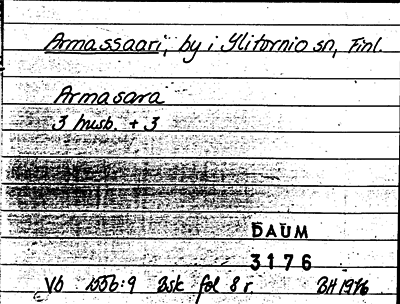 Armassaari, by i Ylitornio sn, Finl.
Armasara
3 husb. + 3
DAUM
3176
Vb 1556:9 Bsk fol 8 r BH 1976